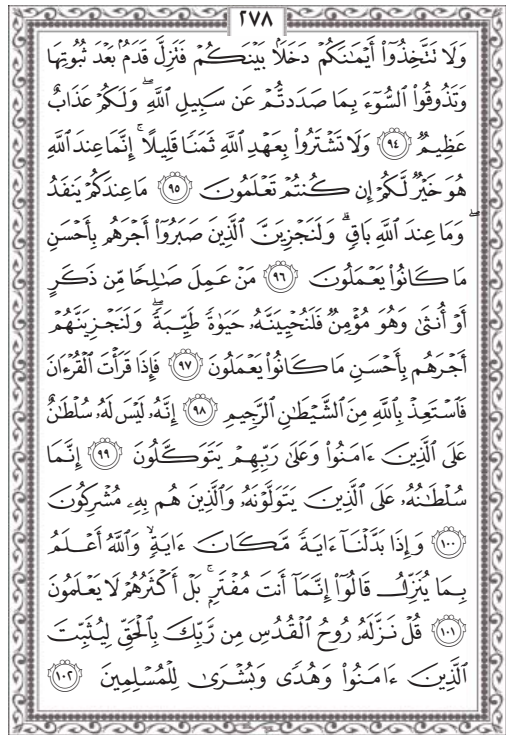 ٢٧٨
وَلَا تَتَّخِذُوٓا۟ أَيْمَـٰنَكُمْ دَخَلًۢا بَيْنَكُمْ فَتَزِلَّ قَدَمٌۢ بَعْدَ ثُبُوتِهَا
وَتَذُوقُوا۟ ٱلسُّوٓءَ بِمَا صَدَدتُّمْ عَن سَبِيلِ ٱللَّهِ ۖ وَلَكُمْ عَذَابٌ
عَظِيمٌ ٩٤ وَلَا تَشْتَرُوا۟ بِعَهْدِ ٱللَّهِ ثَمَنًا قَلِيلًا ۚ إِنَّمَا عِندَ ٱللَّهِ
هُوَ خَيْرٌ لَّكُمْ إِن كُنتُمْ تَعْلَمُونَ ٩٥ مَا عِندَكُمْ يَنفَدُ ۖ
وَمَا عِندَ ٱللَّهِ بَاقٍ ۗ وَلَنَجْزِيَنَّ ٱلَّذِينَ صَبَرُوٓا۟ أَجْرَهُم بِأَحْسَنِ
مَا كَانُوا۟ يَعْمَلُونَ ٩٦ مَنْ عَمِلَ صَـٰلِحًا مِّن ذَكَرٍ
أَوْ أُنثَىٰ وَهُوَ مُؤْمِنٌ فَلَنُحْيِيَنَّهُۥ حَيَوٰةً طَيِّبَةً ۖ وَلَنَجْزِيَنَّهُمْ
أَجْرَهُم بِأَحْسَنِ مَا كَانُوا۟ يَعْمَلُونَ ٩٧ فَإِذَا قَرَأْتَ ٱلْقُرْءَانَ
فَٱسْتَعِذْ بِٱللَّهِ مِنَ ٱلشَّيْطَـٰنِ ٱلرَّجِيمِ ٩٨ إِنَّهُۥ لَيْسَ لَهُۥ سُلْطَـٰنٌ
عَلَى ٱلَّذِينَ ءَامَنُوا۟ وَعَلَىٰ رَبِّهِمْ يَتَوَكَّلُونَ ٩٩ إِنَّمَا
سُلْطَـٰنُهُۥ عَلَى ٱلَّذِينَ يَتَوَلَّوْنَهُۥ وَٱلَّذِينَ هُم بِهِۦ مُشْرِكُونَ
١٠٠ وَإِذَا بَدَّلْنَآ ءَايَةً مَّكَانَ ءَايَةٍ ۙ وَٱللَّهُ أَعْلَمُ
بِمَا يُنَزِّلُ قَالُوٓا۟ إِنَّمَآ أَنتَ مُفْتَرٍۭ ۚ بَلْ أَكْثَرُهُمْ لَا يَعْلَمُونَ
١٠١ قُلْ نَزَّلَهُۥ رُوحُ ٱلْقُدُسِ مِن رَّبِّكَ بِٱلْحَقِّ لِيُثَبِّتَ
ٱلَّذِينَ ءَامَنُوا۟ وَهُدًى وَبُشْرَىٰ لِلْمُسْلِمِينَ ١٠٢